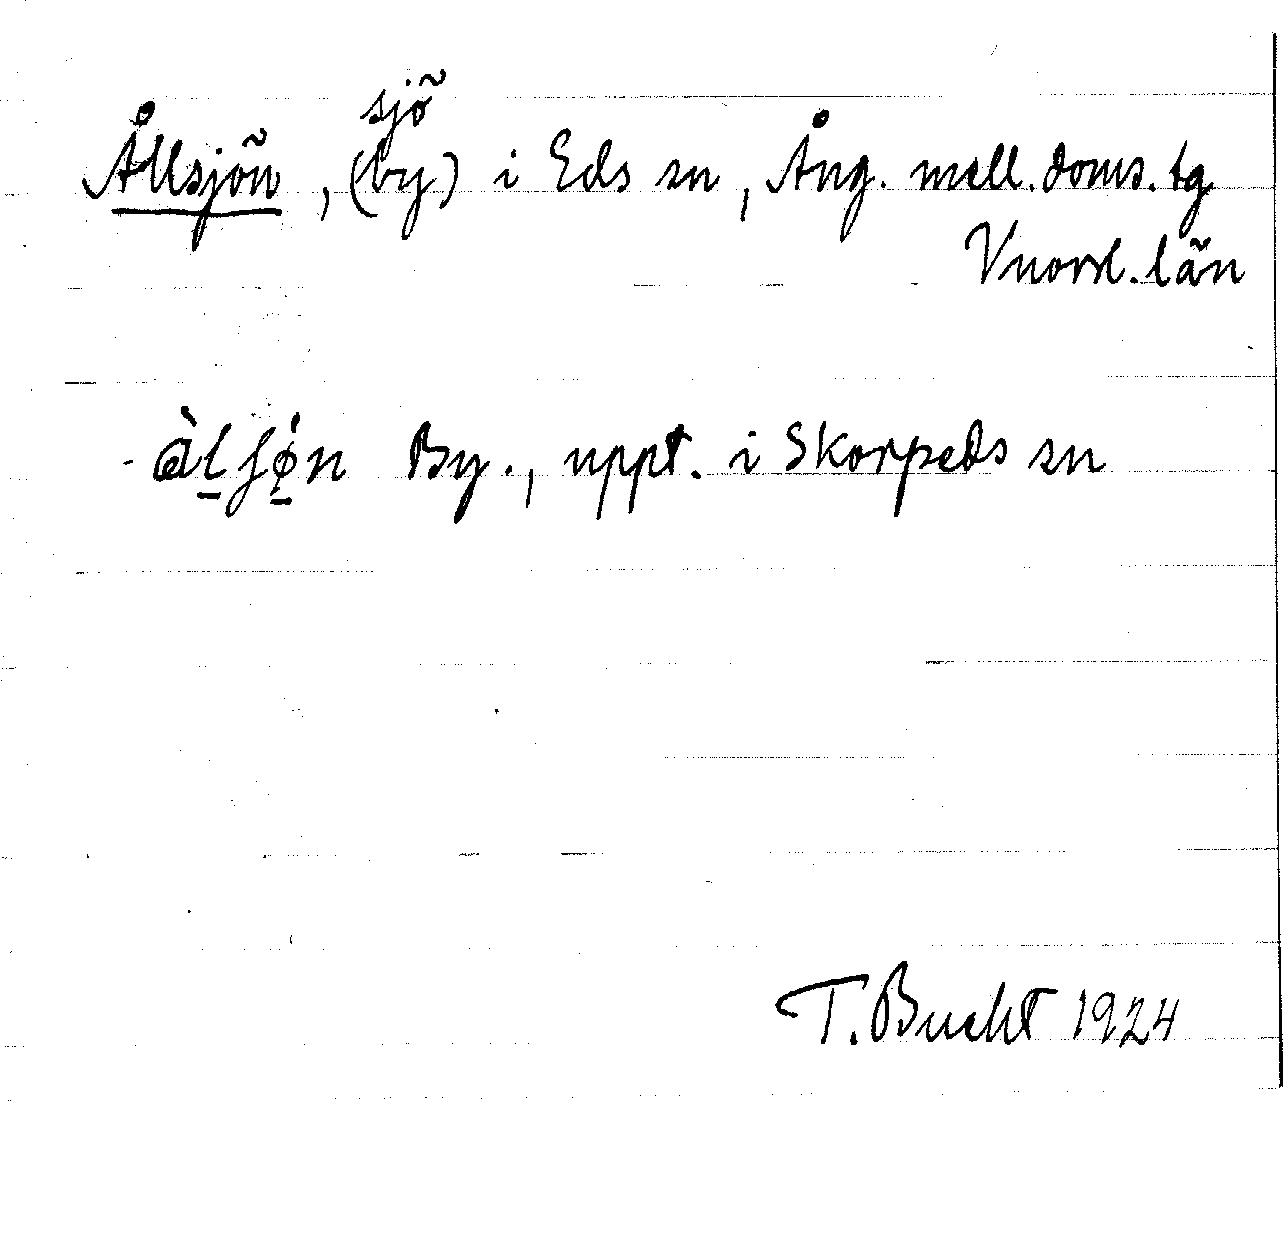 sjö
Ållsjön, (by) i Eds sn, Ång. mell. doms. tg
Vnorrl. län
By., uppt. i Skorpeds sn
T. Bucht 1924